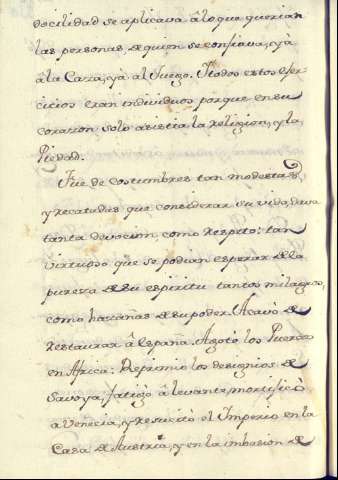 docilidad se aplicava â lo que querian
las personas de quien se confiava, yà
â la Caza, yà al Juego. Ytodos estos exer-
cicios eran individuos porque en su
corazon solo asistia la religion, y la
Piedad.
Fue de costumbres tan modestas,
y recatadas que considerar su vida, dava
tanta devocion, como respeto: tan
virtuoso que se podian esperar de la
pureza de su espiritu tantos milagros,
como hazañas de su poder. Acavò de
restaurar â España. Agotò los Puertos
en Africa: Deprimio los designios de
Savoya, fatigò â levante, mortificò
a Venecia, y resucitò el Imperio en la
Casa de Austria, y en la imbasion de